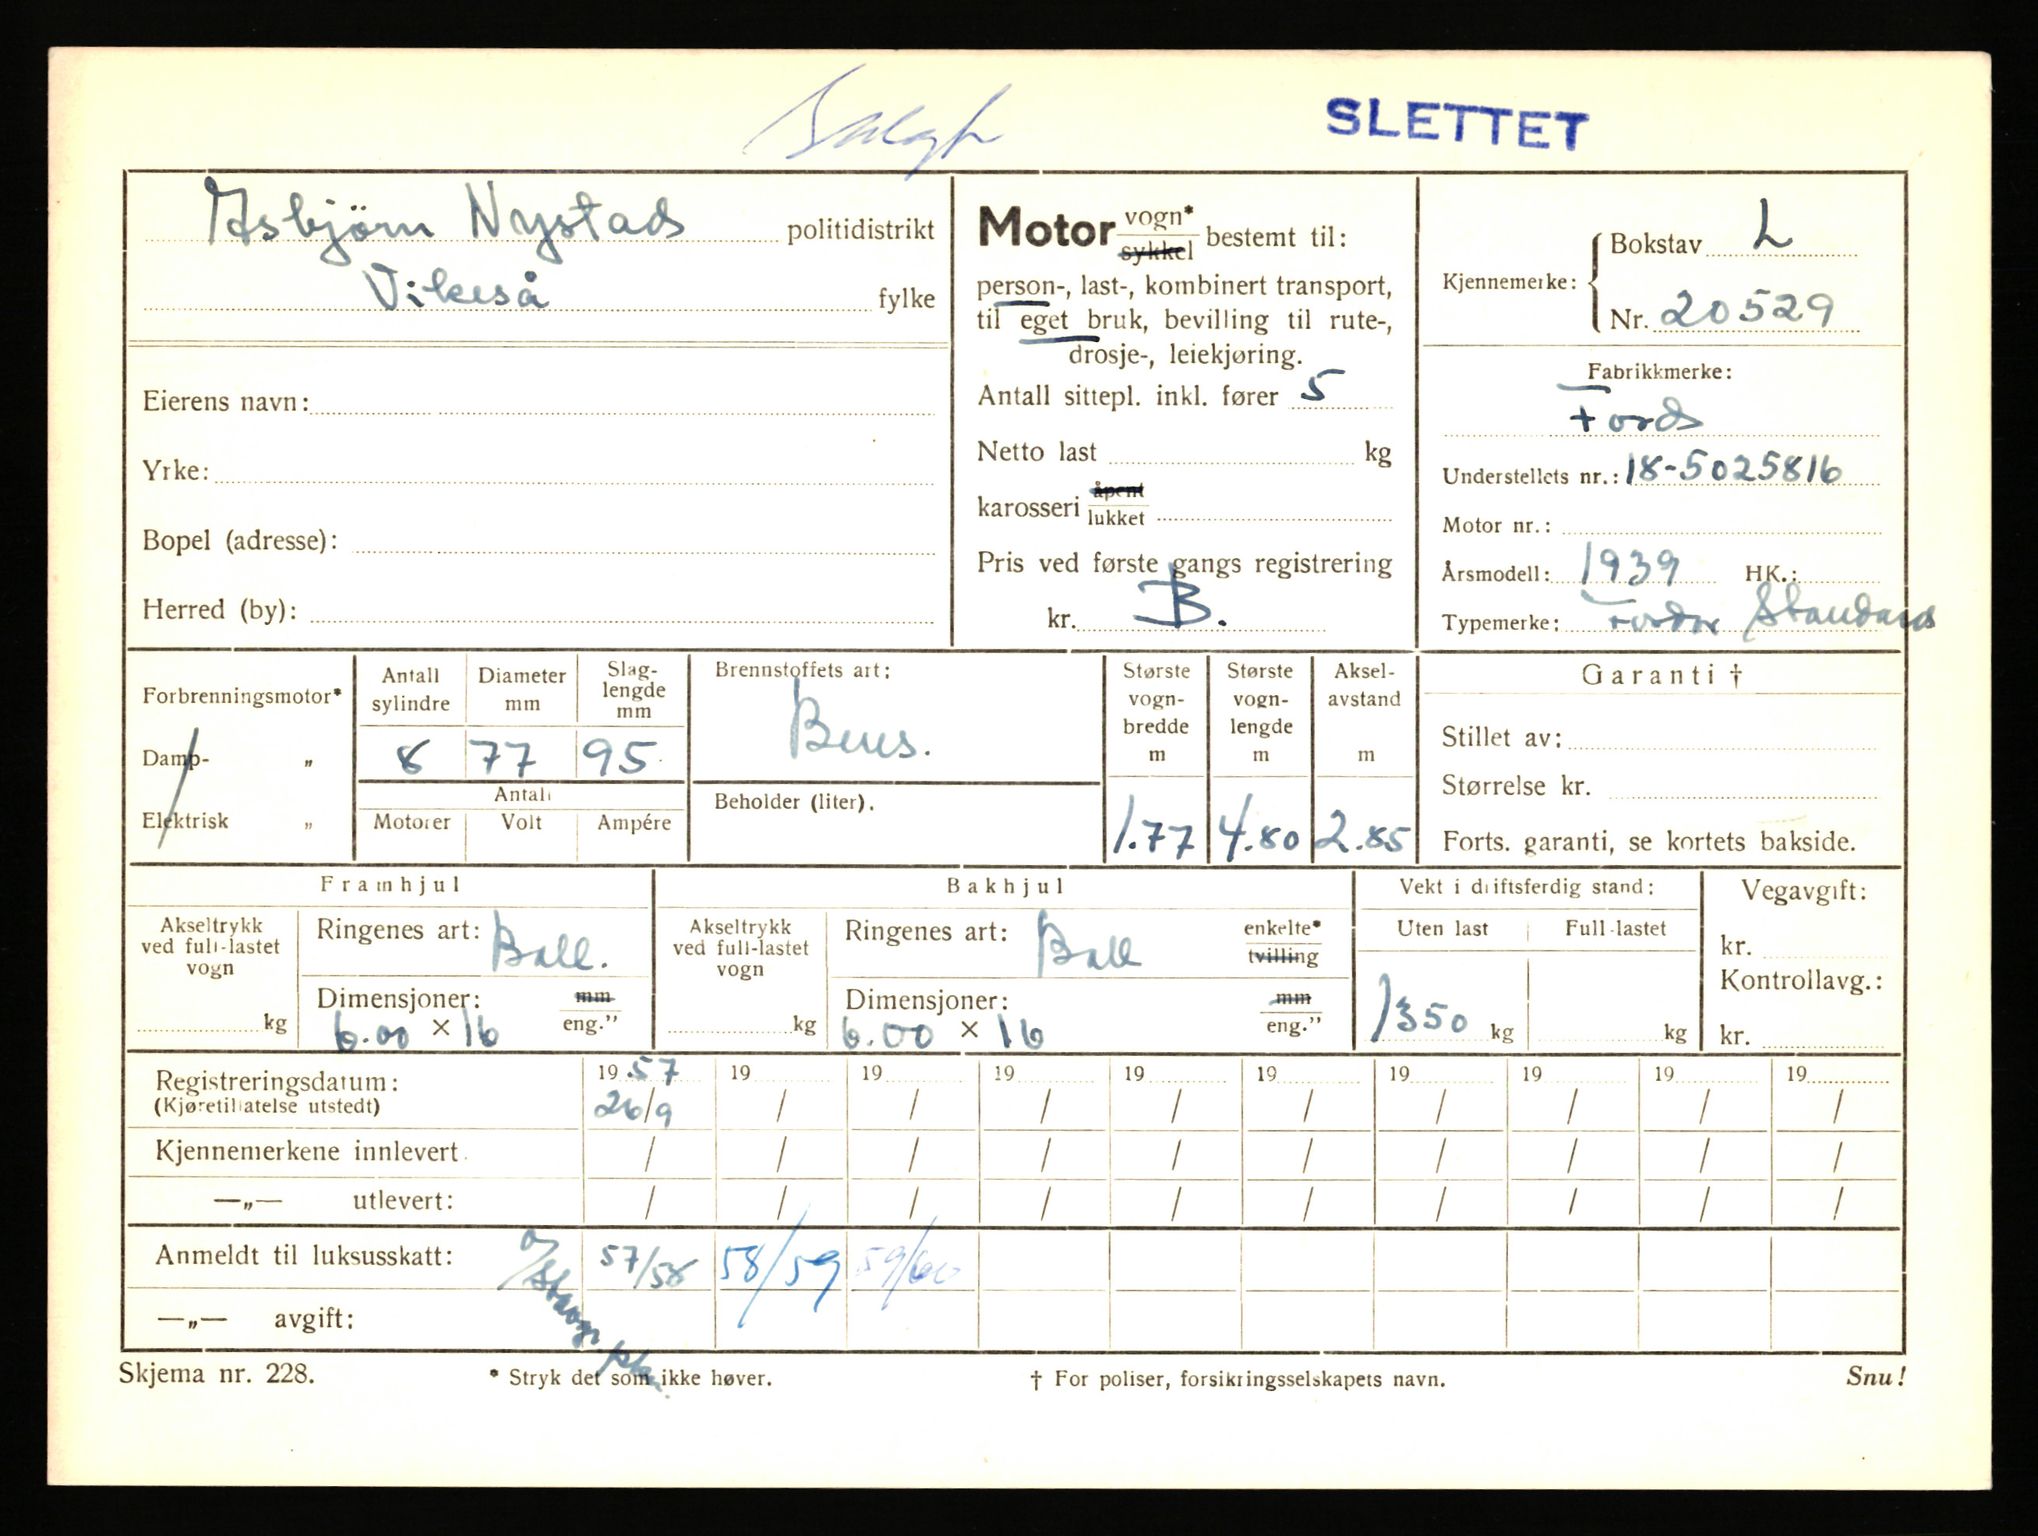 SLETTET
Asbjørn Nystad politidistrikt
Vikeså fylke
Eierens navn:
Yrke:
Bopel (adresse):
Herred (by):
Motor vogn* sykkel bestemt til:
person-, last-, kombinert transport,
til eget bruk, bevilling til rute-,
drosje-, leiekjøring.
Antall sittepl. inkl. fører 5
Netto last kg
karosseri åpent lukket
Pris ved første gangs registrering
kr. B.
Kjennemerke: Bokstav L
Nr. 20529
Fabrikkmerke:
Ford
Understellets nr.: 18-5025816
Motor nr.:
Årsmodell: 1939 HK.:
Typemerke: Fordor Standard
Forbrenningsmotor*
Damp- „
Elektrisk „
Antall sylindre Diameter mm Slag-lengde mm
8 77 95
Antall
Motorer Volt Ampére
Brennstoffets art:
Bens.
Beholder (liter).
Største vogn-bredde m Største vogn-lengde m Aksel-avstand m
1.77 4.80 2.85
Garanti †
Stillet av:
Størrelse kr.
Forts. garanti, se kortets bakside.
Framhjul
Akseltrykk ved full-lastet vogn
kg
Ringenes art: Ball.
Dimensjoner: mm
6.00 × 16 eng.”
Bakhjul
Akseltrykk ved full-lastet vogn
kg
Ringenes art: Ball enkelte* tvilling
Dimensjoner: mm
6.00 × 16 eng.”
Vekt i driftsferdig stand:
Uten last Full-lastet
1350 kg kg
Vegavgift:
kr.
Kontrollavg.:
kr.
Registreringsdatum: 19 57 19 19 19 19 19 19 19 19 19
(Kjøretillatelse utstedt) 26/9 / / / / / / / / /
Kjennemerkene innlevert / / / / / / / / / /
—„— utlevert: / / / / / / / / / /
Anmeldt til luksusskatt: 57/58 58/59 59/60
—„— avgift:
Skjema nr. 228. * Stryk det som ikke høver. † For poliser, forsikringsselskapets navn. Snu!